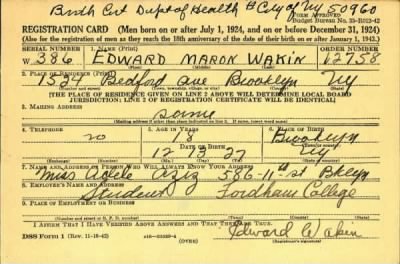 Birth Cert Dept of Health City of NY 50960
FORM APPROVED
Budget Bureau No. 33-R012-42
REGISTRATION CARD (Men born on or after July 1, 1924, and on or before December 31, 1924)
(Also for the registration of men as they reach the 18th anniversary of the date of their birth on or after January 1, 1943.)
SERIAL NUMBER
1. NAME (Print)
ORDER NUMBER
W 386 EDWARD MARON WAKIN 12758
(First) (Middle) (Last)
2. PLACE OF RESIDENCE (Print)
1524 Bedford Ave Brooklyn NY
(Number and street) (Town, township, village, or city) (County) (State)
[THE PLACE OF RESIDENCE GIVEN ON LINE 2 ABOVE WILL DETERMINE LOCAL BOARD
JURISDICTION; LINE 2 OF REGISTRATION CERTIFICATE WILL BE IDENTICAL]
3. MAILING ADDRESS
same
(Mailing address if other than place indicated on line 2. If same, insert word same)
4. TELEPHONE
5. AGE IN YEARS
6. PLACE OF BIRTH
no 18 Brooklyn
DATE OF BIRTH
12 13 27 NY
(Exchange) (Number) (Mo.) (Day) (Yr.) (State or country)
7. NAME AND ADDRESS OF PERSON WHO WILL ALWAYS KNOW YOUR ADDRESS
Miss Adele Aziz 586-11th St Bklyn
8. EMPLOYER'S NAME AND ADDRESS
Student Fordham College
9. PLACE OF EMPLOYMENT OR BUSINESS
(Number and street or R. F. D. number) (Town) (County) (State)
I AFFIRM THAT I HAVE VERIFIED ABOVE ANSWERS AND THAT THEY ARE TRUE.
Edward Wakin
DSS Form 1 (Rev. 11-16-42) (OVER) (Registrant's signature)